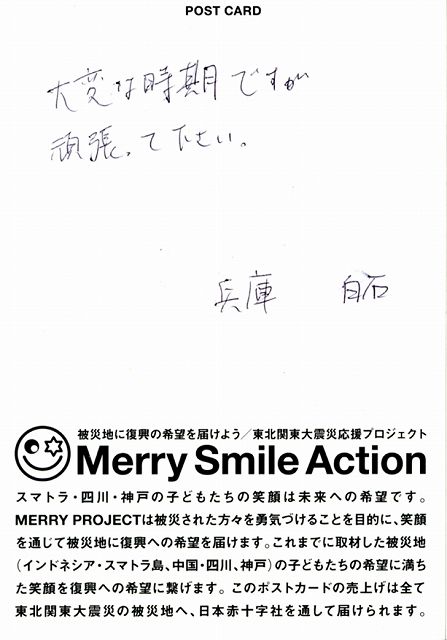 POST CARD
大変な時期ですが
頑張って下さい。
兵庫 白石
被災地に復興の希望を届けよう／東北関東大震災応援プロジェクト
Merry Smile Action
スマトラ・四川・神戸の子どもたちの笑顔は未来への希望です。
MERRY PROJECTは被災された方々を勇気づけることを目的に、笑顔
を通じて被災地に復興への希望を届けます。これまでに取材した被災地
（インドネシア・スマトラ島、中国・四川、神戸）の子どもたちの希望に満ち
た笑顔を復興への希望に繋げます。このポストカードの売上げは全て
東北関東大震災の被災地へ、日本赤十字社を通して届けられます。